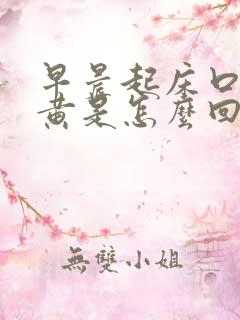 早晨起床口
黄是怎麼回
無雙小姐